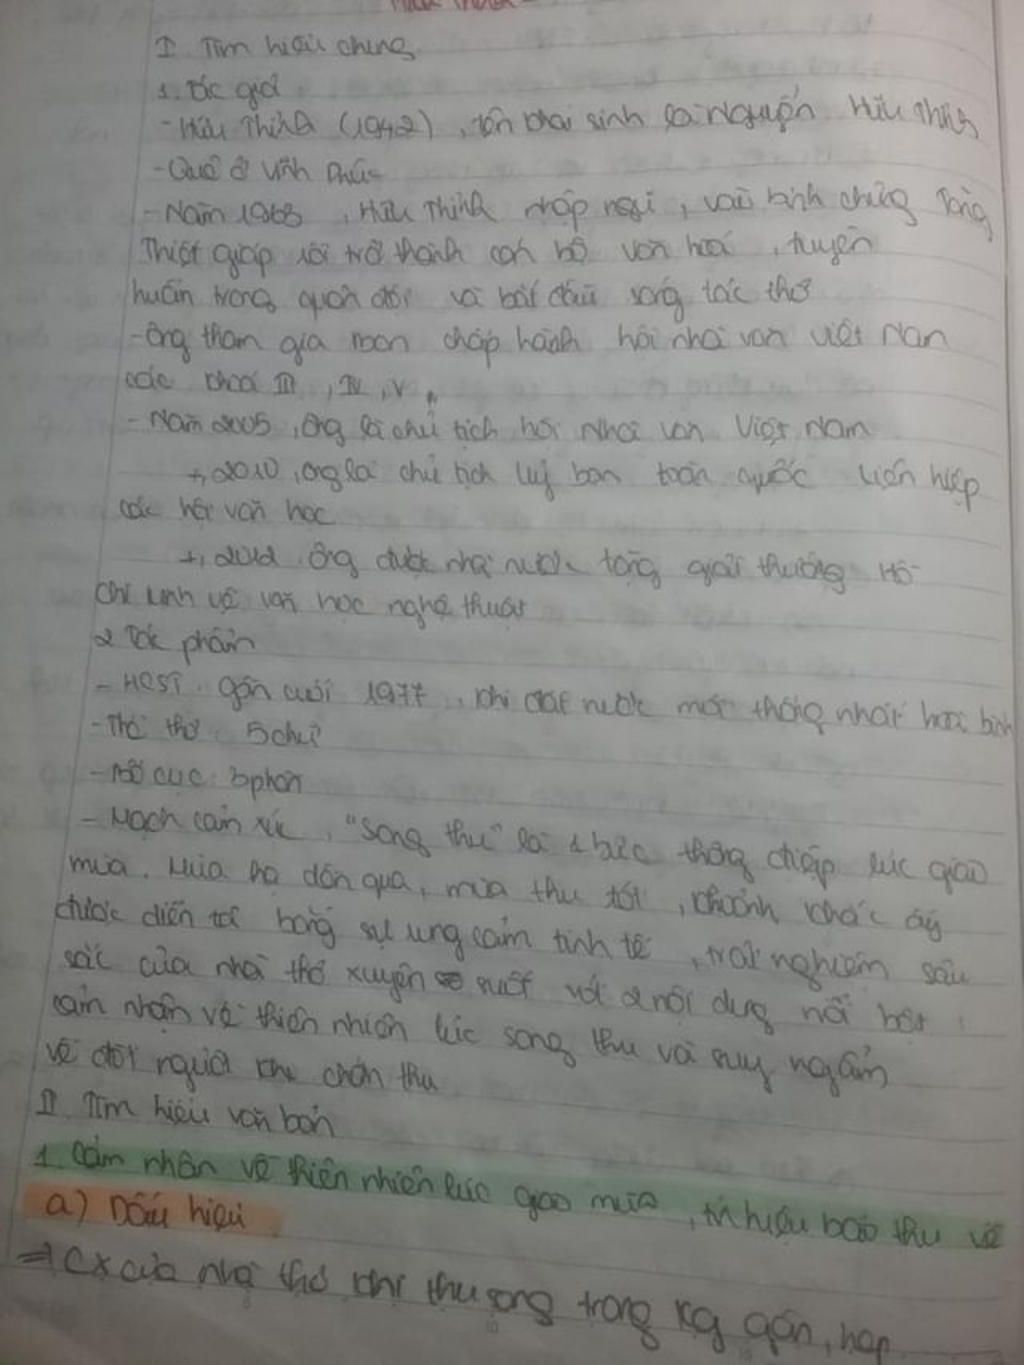 I. Tìm hiểu chung
1. Tác giả
- Hữu Thỉnh (1942), tên khai sinh là Nguyễn Hữu Thỉnh
- Quê ở Vĩnh Phúc
- Năm 1963, Hữu Thỉnh nhập ngũ, vào binh chủng Tăng
Thiết giáp rồi trở thành cán bộ văn hoá, tuyên
huấn trong quân đội và bắt đầu sáng tác thơ
- Ông tham gia ban chấp hành hội nhà văn Việt Nam
các khoá III, IV, V
- Năm 2005, ông là chủ tịch hội nhà văn Việt Nam
+, 2010, ông là chủ tịch uỷ ban toàn quốc liên hiệp
các hội văn học
+, 2012 ông được nhà nước tặng giải thưởng Hồ
Chí Minh về văn học nghệ thuật
2 Tác phẩm
- HCST: gần cuối 1977, khi đất nước mới thống nhất hoà bình
- Thể thơ: 5 chữ
- Bố cục: 3 phần
- Mạch cảm xúc: "Sang thu" là 1 bức thông điệp lúc giao
mùa. Mùa hạ dần qua, mùa thu tới, khoảnh khắc ấy
được diễn tả bằng sự rung cảm tinh tế, trải nghiệm sâu
sắc của nhà thơ xuyên suốt với 2 nội dung nổi bật:
cảm nhận về thiên nhiên lúc sang thu và suy ngẫm
về đời người khi chớm thu
II Tìm hiểu văn bản
1. Cảm nhận về thiên nhiên lúc giao mùa, tín hiệu báo thu về
a) Dấu hiệu
=> Cx của nhà thơ khi thu sang trong kg gần, hẹp